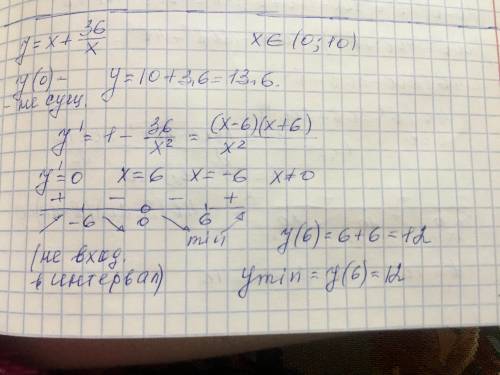 y = x + 36/x    x ∈ (0; 10)
y(0) - не сущ.    y = 10 + 3,6 = 13,6.
y' = 1 - 36/x² = (x-6)(x+6)/x²
y' = 0    x = 6    x = -6    x ≠ 0
+ - - +
-6 0 6
min
(не вход. в интервал)
y(6) = 6 + 6 = 12
ymin = y(6) = 12